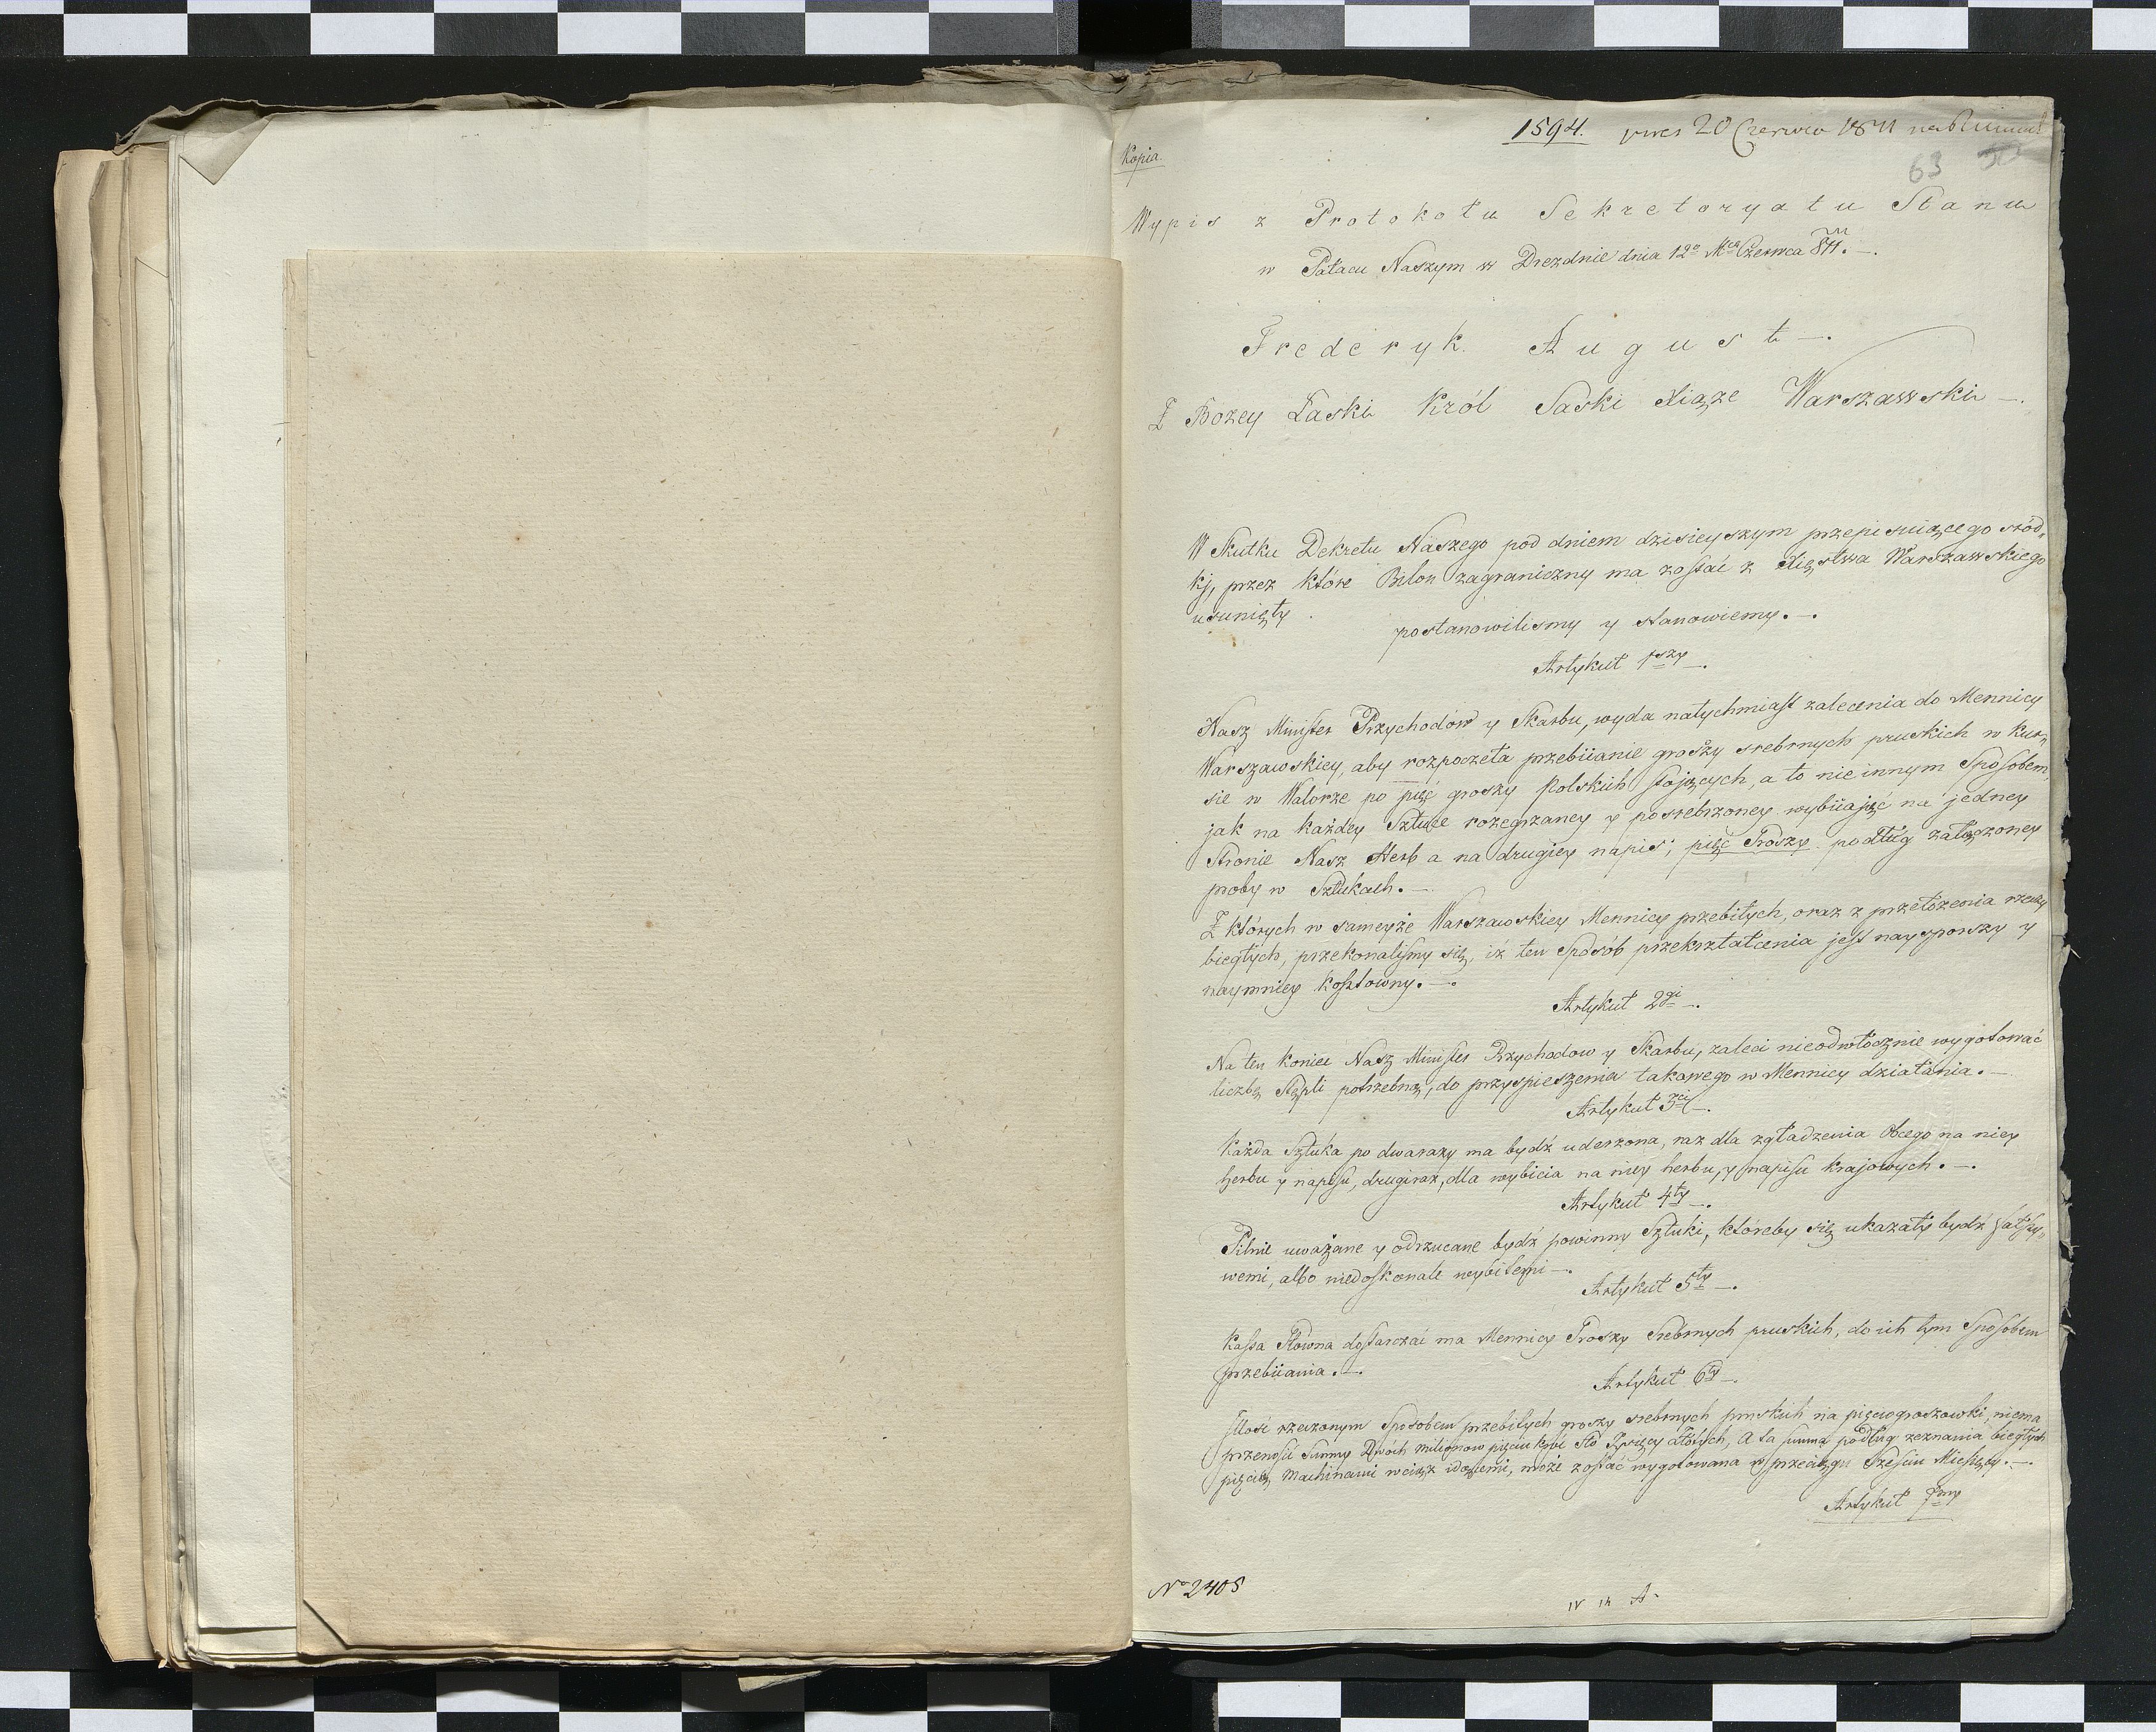 1594. pres 20 Czerwca 1811
Kopia.
63
Wypis z Protokołu Sekretaryatu Stanu
w Pałacu Naszym w Dreznie dnia 12º Mca Czerwca 811. —.
Frederyk August —.
Z Bozey Łaski Król Saski Xiąze Warszawski —.
W Skutku Dekretu Naszego pod dniem dzisieyszym przepisuiącego śród„
ki, przez które Bilon zagraniczny ma zostać z Xięstwa Warszawskiego
usunięty
postanowilismy y stanowiemy. —.
Artykuł 1szy —.
Nasz Minister Przychodów y Skarbu, wyda natychmiast zalecenia do Mennicy
Warszawskiey, aby rozpoczeła przebiianie groszy srebrnych pruskich w kur„
sie w Walorze po pięć groszy Polskich stojących, a to nie innym Sposobem,
jak na każdey Sztuce rozegrzaney y posrebrzoney wybiiając na jedney
Stronie Nasz Herb a na drugiey napis; pięć Groszy podług załączoney
proby w Sztukach. —
Z których w sameyże Warszawskiey Mennicy przebitych, oraz z przełożenia rzeczy
biegłych, przekonaliśmy się, iż ten Sposób przekształcenia jest naysporszy y
naymniey kosztowny. —.
Artykuł 2gi —.
Na ten koniec Nasz Minister Przychodow y Skarbu, zaleci nieodwłocznie wygotować
liczbę Stępli potrzebną, do przyspieszenia takowego w Mennicy działania. —
Artykuł 3ci —.
Każda Sztuka po dwarazy ma bydź uderzona, raz dla zgładzenia Obcego na niey
herbu y napisu, drugi raz, dla wybicia na niey herbu, y napisu krajowych. —.
Artykuł 4ty —.
Pilnie uważane y odrzucane bydź powinny Sztuki, któreby się ukazały bydź fałszy„
wemi, albo niedoskonale wybitemi —.
Artykuł 5ty —.
Kassa Główna dostarczać ma Mennicy Groszy Srebrnych pruskich, do ich tym Sposobem
przebiiania. —.
Artykuł 6ty —.
Ilość rzeczonym Sposobem przebitych groszy srebrnych pruskich na pięciogroszowki, niema
przenosić Summy Dwóch milionow pięciukroć sto Tysięcy Złotych, A ta summa podług zeznania biegłych
pięcią Machinami wciąż idącemi, może zostać wygotowana w przeciągu Sześciu Miesięcy. —.
Artykuł 7my
Nº 2405